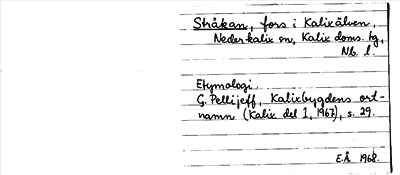 Stråkan, fors i Kalixälven,
Nederkalix sn, Kalix doms. tg,
Nb. l.
Etymologi.
G. Pellijeff, Kalixbygdens ort-
namn (Kalix del I, 1967), s. 29.
E.Å. 1968.